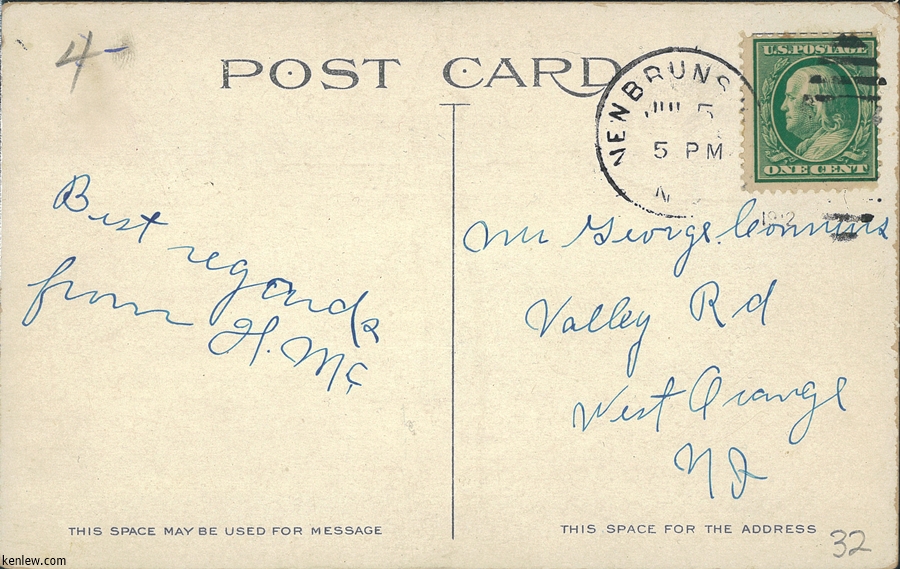 4-
POST CARD
U.S. POSTAGE
ONE CENT
NEW BRUNS
5
5 PM
N
1912
Best regards
from H. Mc
Mr George
Valley Rd
West Orange
NJ
THIS SPACE MAY BE USED FOR MESSAGE
THIS SPACE FOR THE ADDRESS
32
kenlew.com